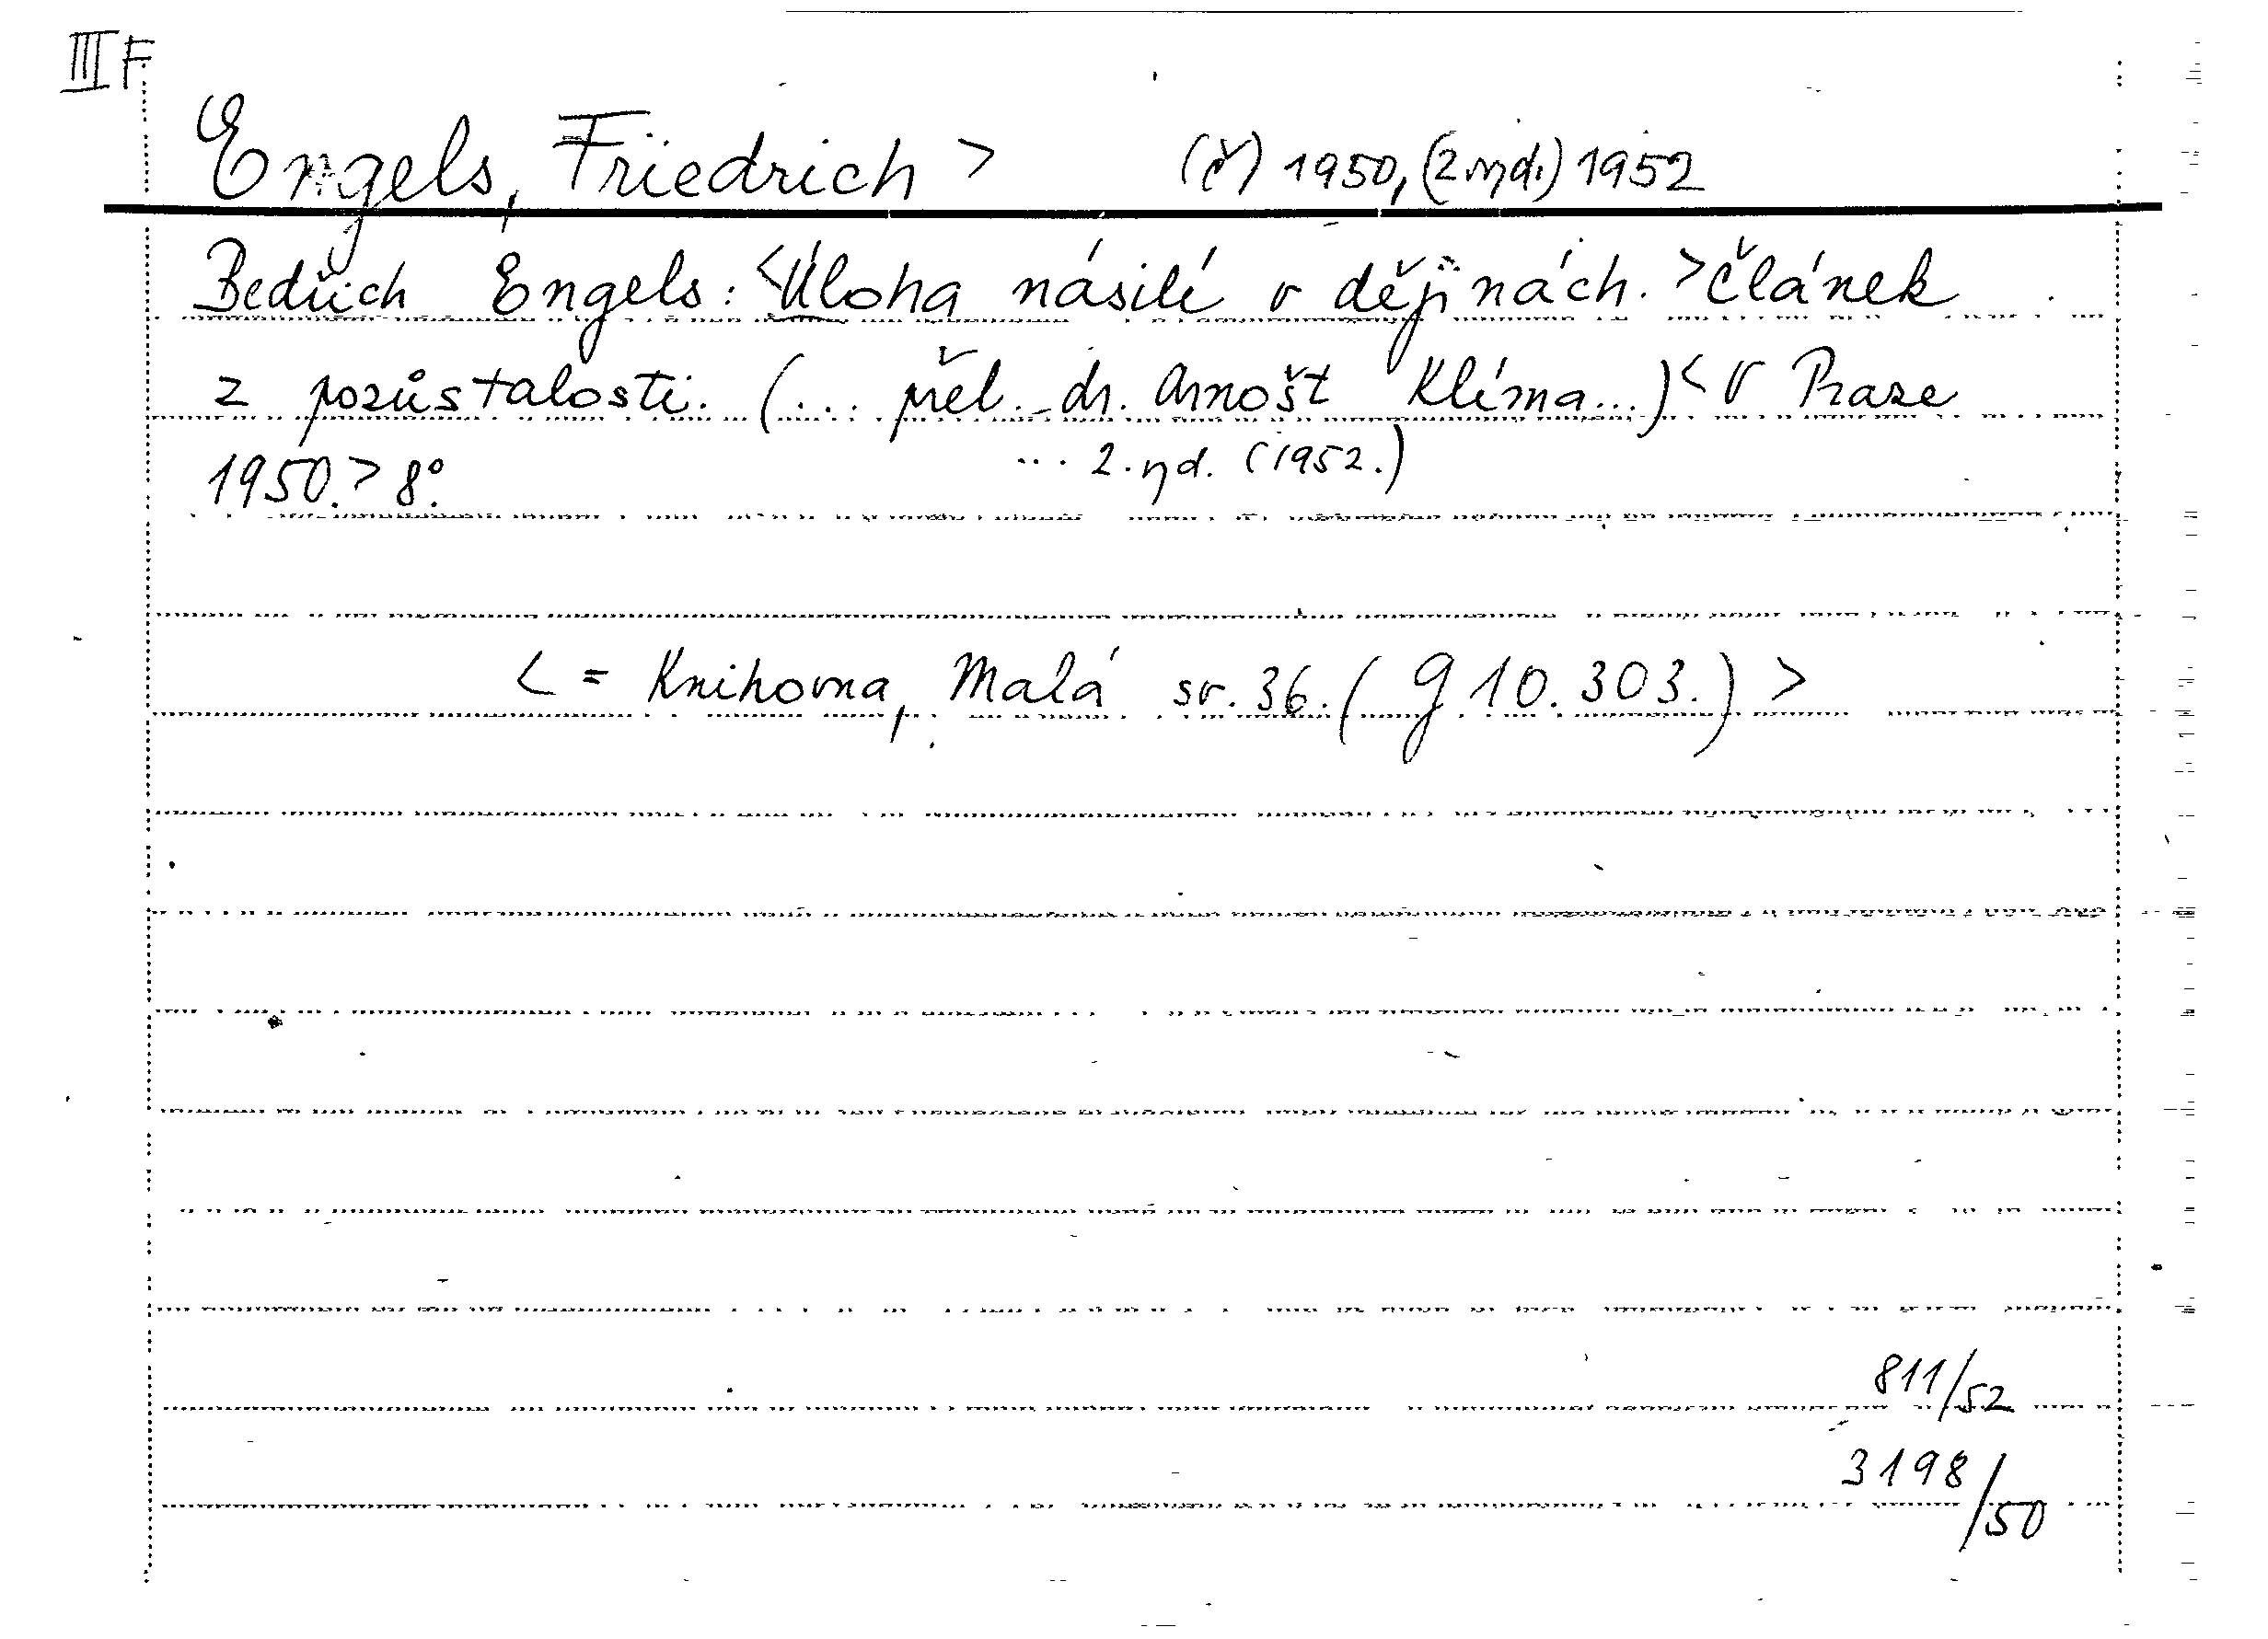 III F
Engels, Friedrich > (č) 1950, (2 vyd.) 1952
Bedřich Engels: <Úloha násilí v dějinách. > článek
z pozůstalosti. (... přel. dr. Arnošt Klíma...) < V Praze
1950. > 8°. ... 2. vyd. (1952.)
< = Knihovna, Malá sv. 36. ( g 10.303.) >
811/52
3198/50